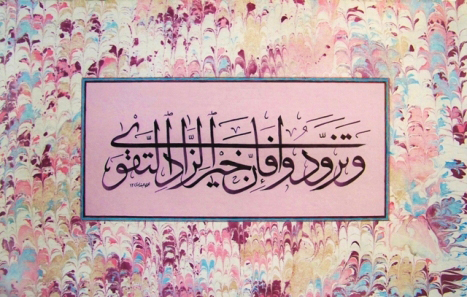 وَتَزَوَّدُوا فَإِنَّ خَيْرَ الزَّادِ التَّقْوَى